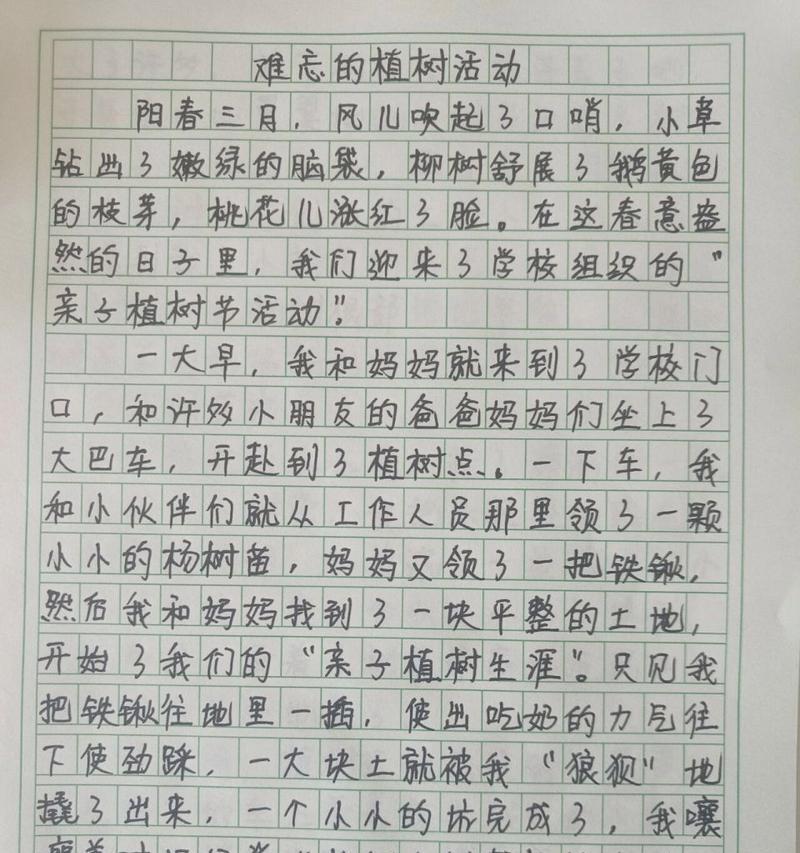 难忘的植树活动
阳春三月，风儿吹起了口哨，小草
钻出了嫩绿的脑袋，柳树舒展了鹅黄色
的枝芽，桃花儿涨红了脸。在这春意盎
然的日子里，我们迎来了学校组织的“
亲子植树节活动”。
一大早，我和妈妈就来到了学校门
口，和许多小朋友的爸爸妈妈们坐上了
大巴车，开赴到了植树点。一下车，我
和小伙伴们就从工作人员那里领了一颗
小小的杨树苗，妈妈又领了一把铁锹，
然后我和妈妈找到了一块平整的土地，
开始了我们的“亲子植树生涯”。只见我
把铁锹往地里一插，使出吃奶的力气往
下使劲踩，一大块土就被我“狼狈”地
撬了出来，一个小小的坑完成了，我嚷